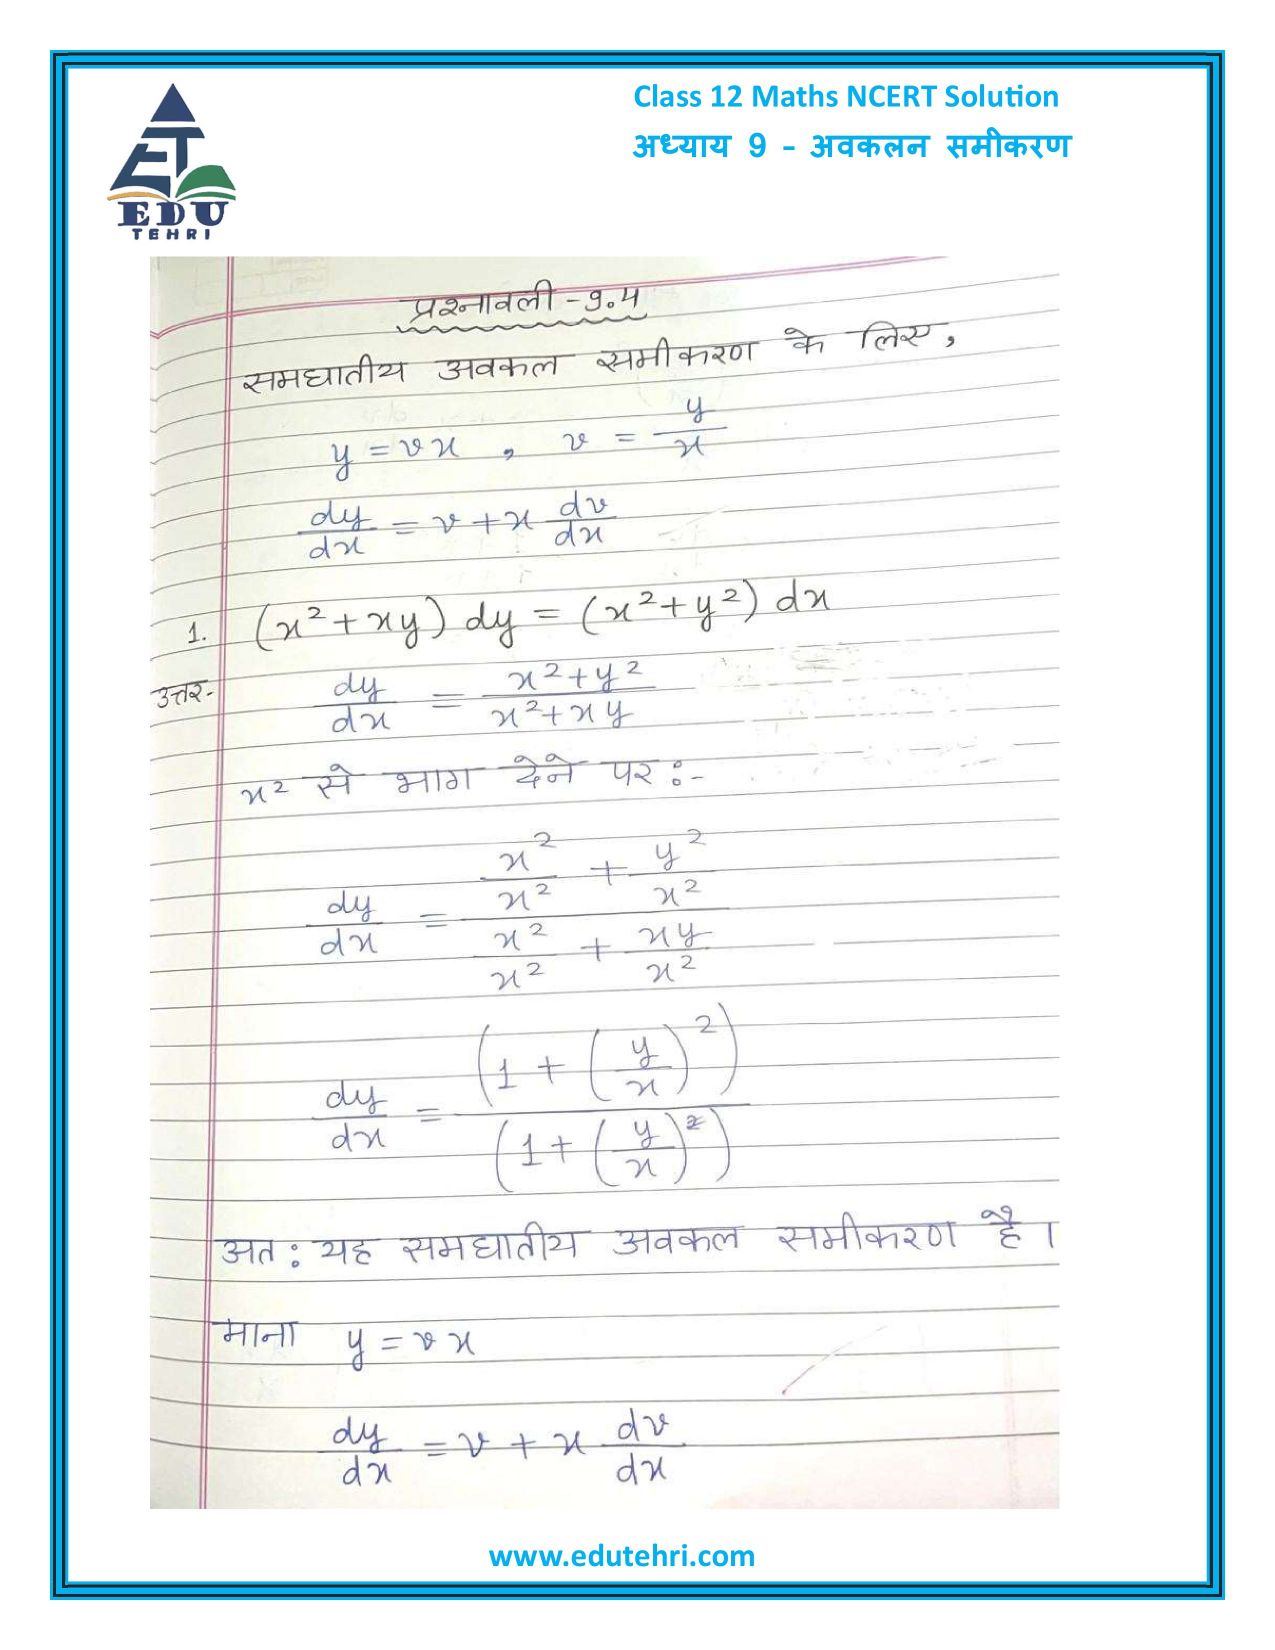 Class 12 Maths NCERT Solution
अध्याय 9 - अवकलन समीकरण
EDU
TEHRI
प्रश्नावली - 9.4
समघातीय अवकल समीकरण के लिए,
y = vx , v = y/x
dy/dx = v + x dv/dx
1. (x² + xy) dy = (x² + y²) dx
उत्तर- dy/dx = (x² + y²)/(x² + xy)
x² से भाग देने पर :-
dy/dx = (x²/x² + y²/x²)/(x²/x² + xy/x²)
dy/dx = (1 + (y/x)²)/(1 + (y/x)²)
अत: यह समघातीय अवकल समीकरण है ।
माना y = vx
dy/dx = v + x dv/dx
www.edutehri.com